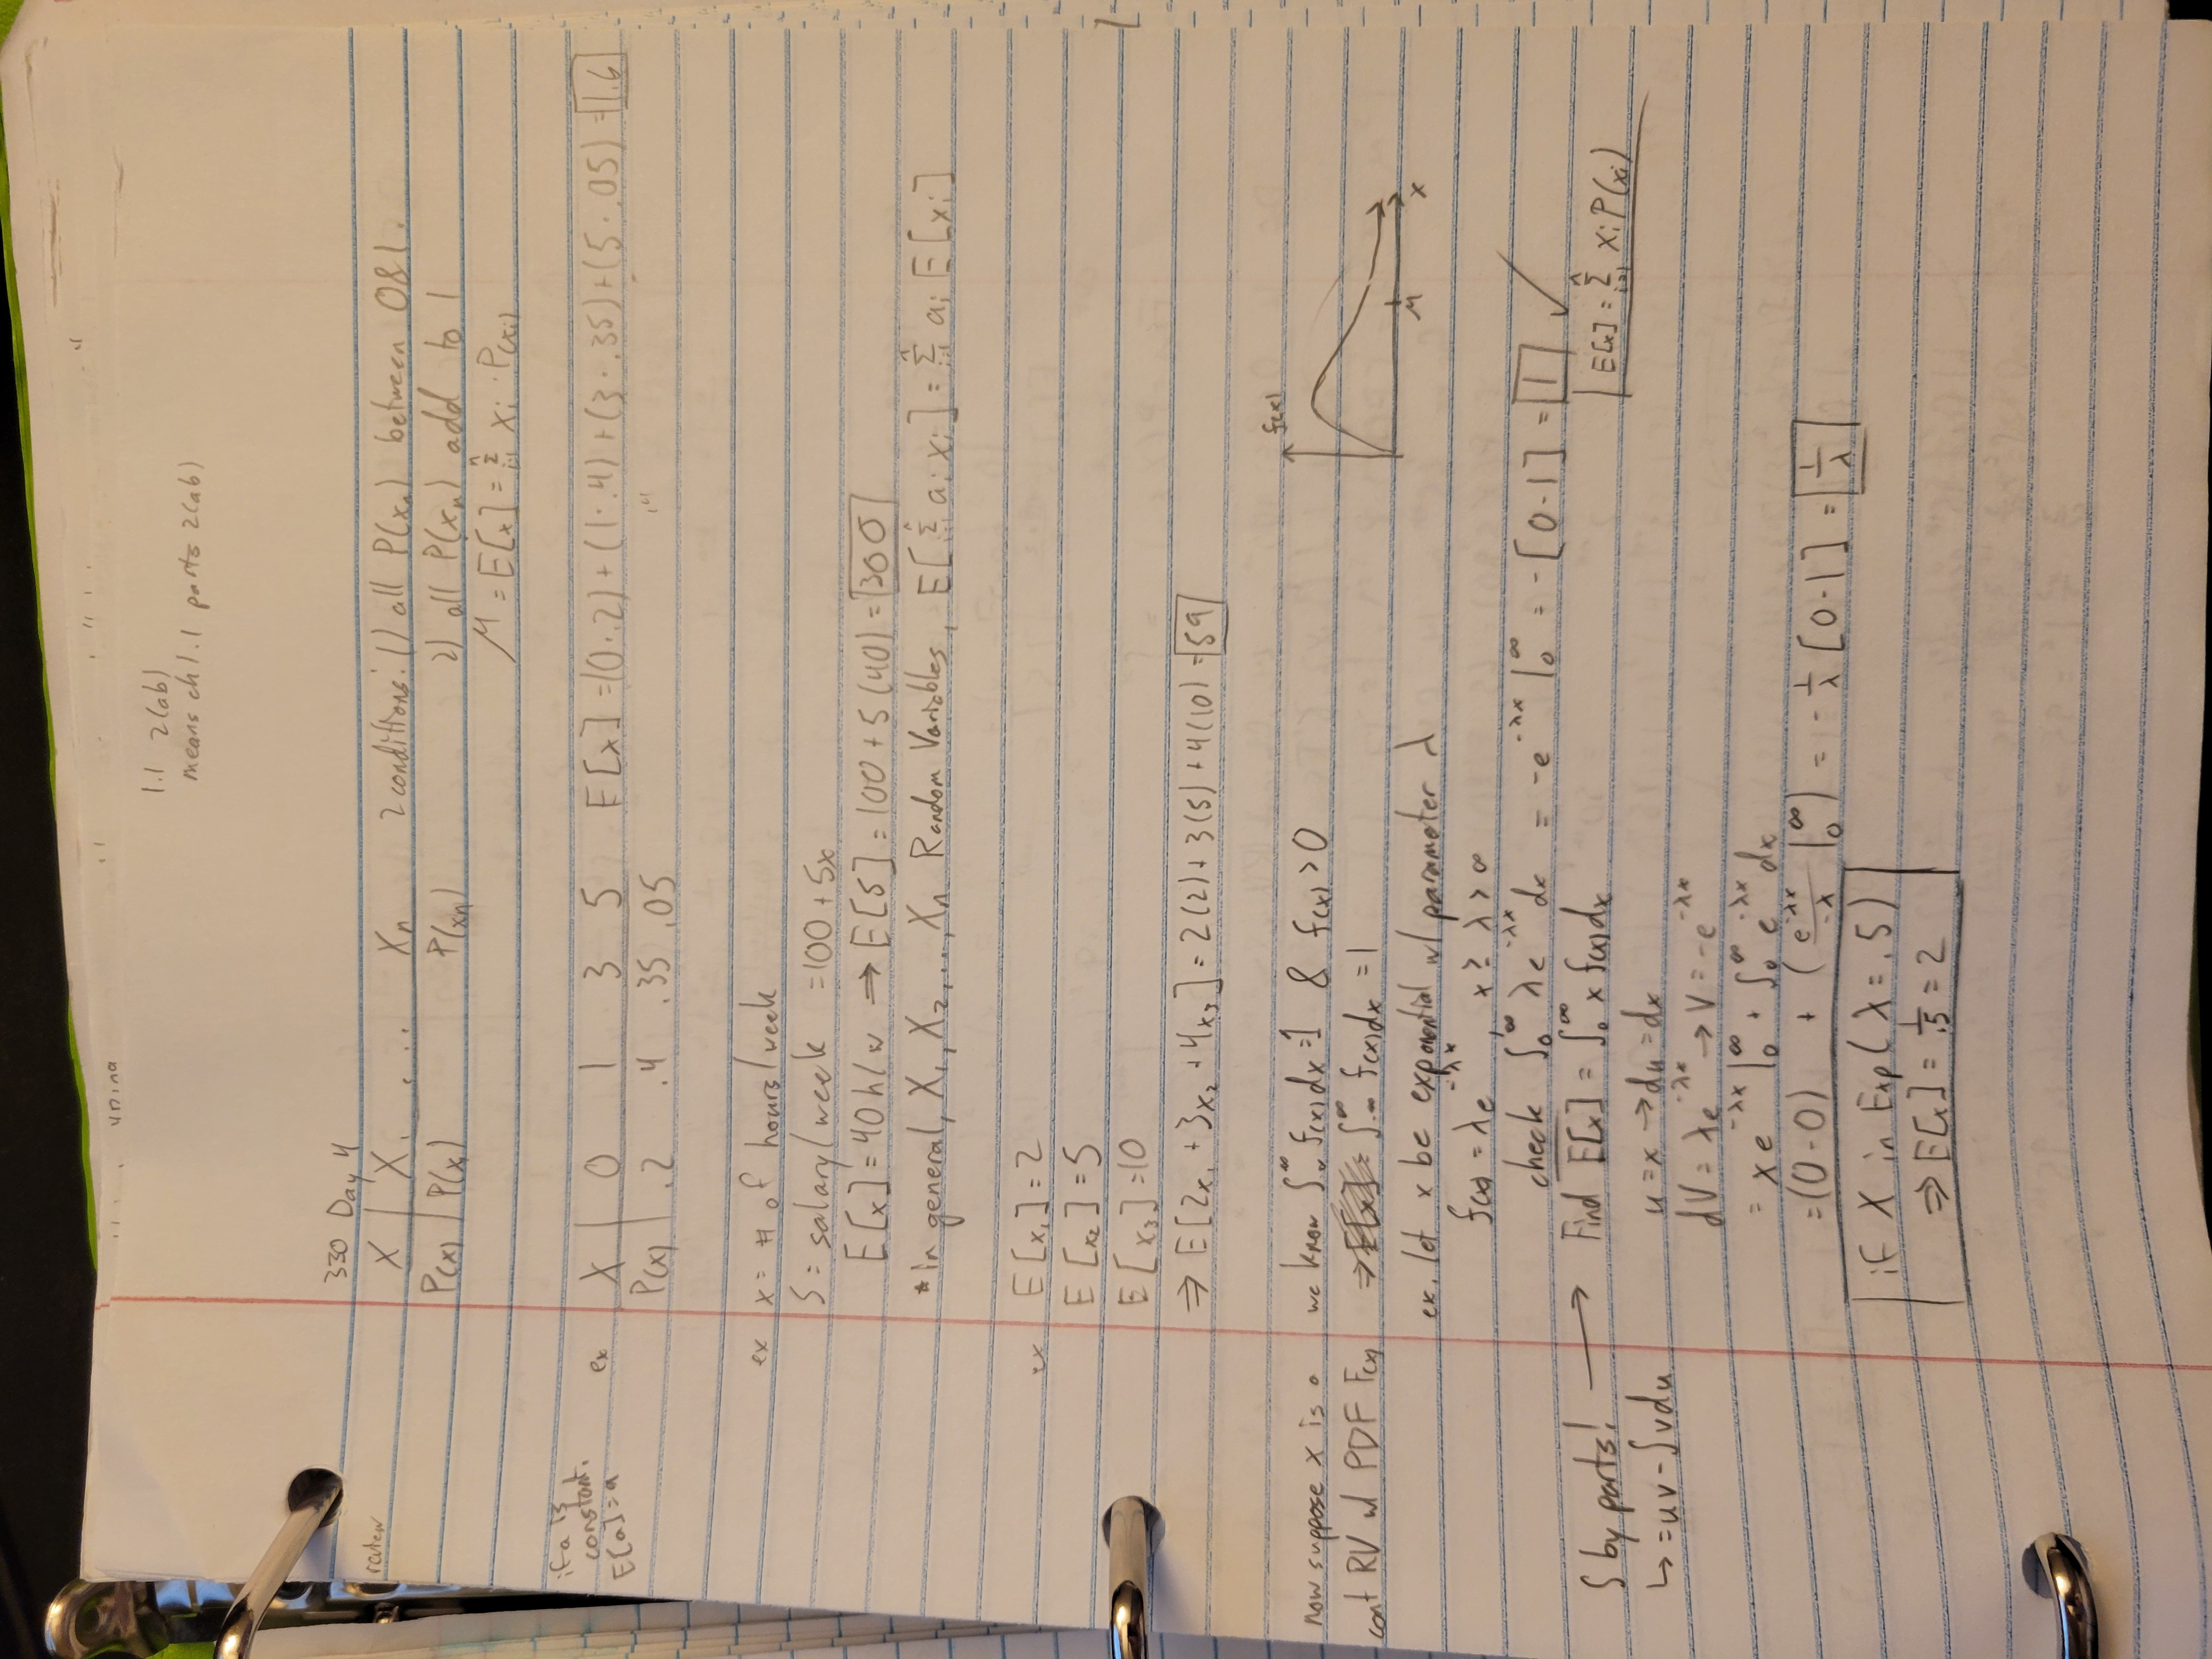 1.1 2(ab)
means ch 1.1 parts 2(ab)
330 Day 4
review
X | X₁ , ... Xn 2 conditions: 1) all P(xn) between 0&1.
P(x) | P(x₁) P(xn) 2) all P(xn) add to 1
M = E[x] = Σ(i=1 to n) xi · P(xi)
if a is
constant,
E[a]=a
ex X | 0 1 3 5 E[x] = (0·.2)+(1·.4)+(3·.35)+(5·.05) = 1.6
P(x) | .2 .4 .35 .05
ex x = # of hours/week
S = salary/week = 100 + 5x
E[x] = 40 h/w ⇒ E[S] = 100 + 5(40) = 300
*in general, X₁, X₂, ..., Xn Random Variables, E[Σ(i=1 to n) ai xi] = Σ(i=1 to n) ai E[xi]
ex E[x₁] = 2
E[x₂] = 5
E[x₃] = 10
⇒ E[2x₁ + 3x₂ + 4x₃] = 2(2) + 3(5) + 4(10) = 59
f(x)
now suppose x is a we know ∫ ∞ f(x)dx = 1 & f(x) > 0
cont RV w/ PDF F(x) ⇒ ∫-∞ ∞ f(x)dx = 1
M x
ex. let x be exponential w/ parameter λ
f(x) = λe^-λx , x ≥ λ > ∞
check ∫₀^∞ λe^-λx dx = -e^-λx |₀^∞ = -[0-1] = 1 ✓
∫ by parts! → Find E[x] = ∫₀^∞ x f(x)dx
E[x] = Σ(i=1 to n) xi P(xi)
↳ = uv - ∫vdu
u = x → du = dx
dV = λe^-λx → V = -e^-λx
= xe^-λx |₀^∞ + ∫₀^∞ e^-λx dx
= (0-0) + (e^-λx / -λ |₀^∞) = -1/λ [0-1] = 1/λ
if X in Exp(λ = .5)
⇒ E[x] = 1/.5 = 2